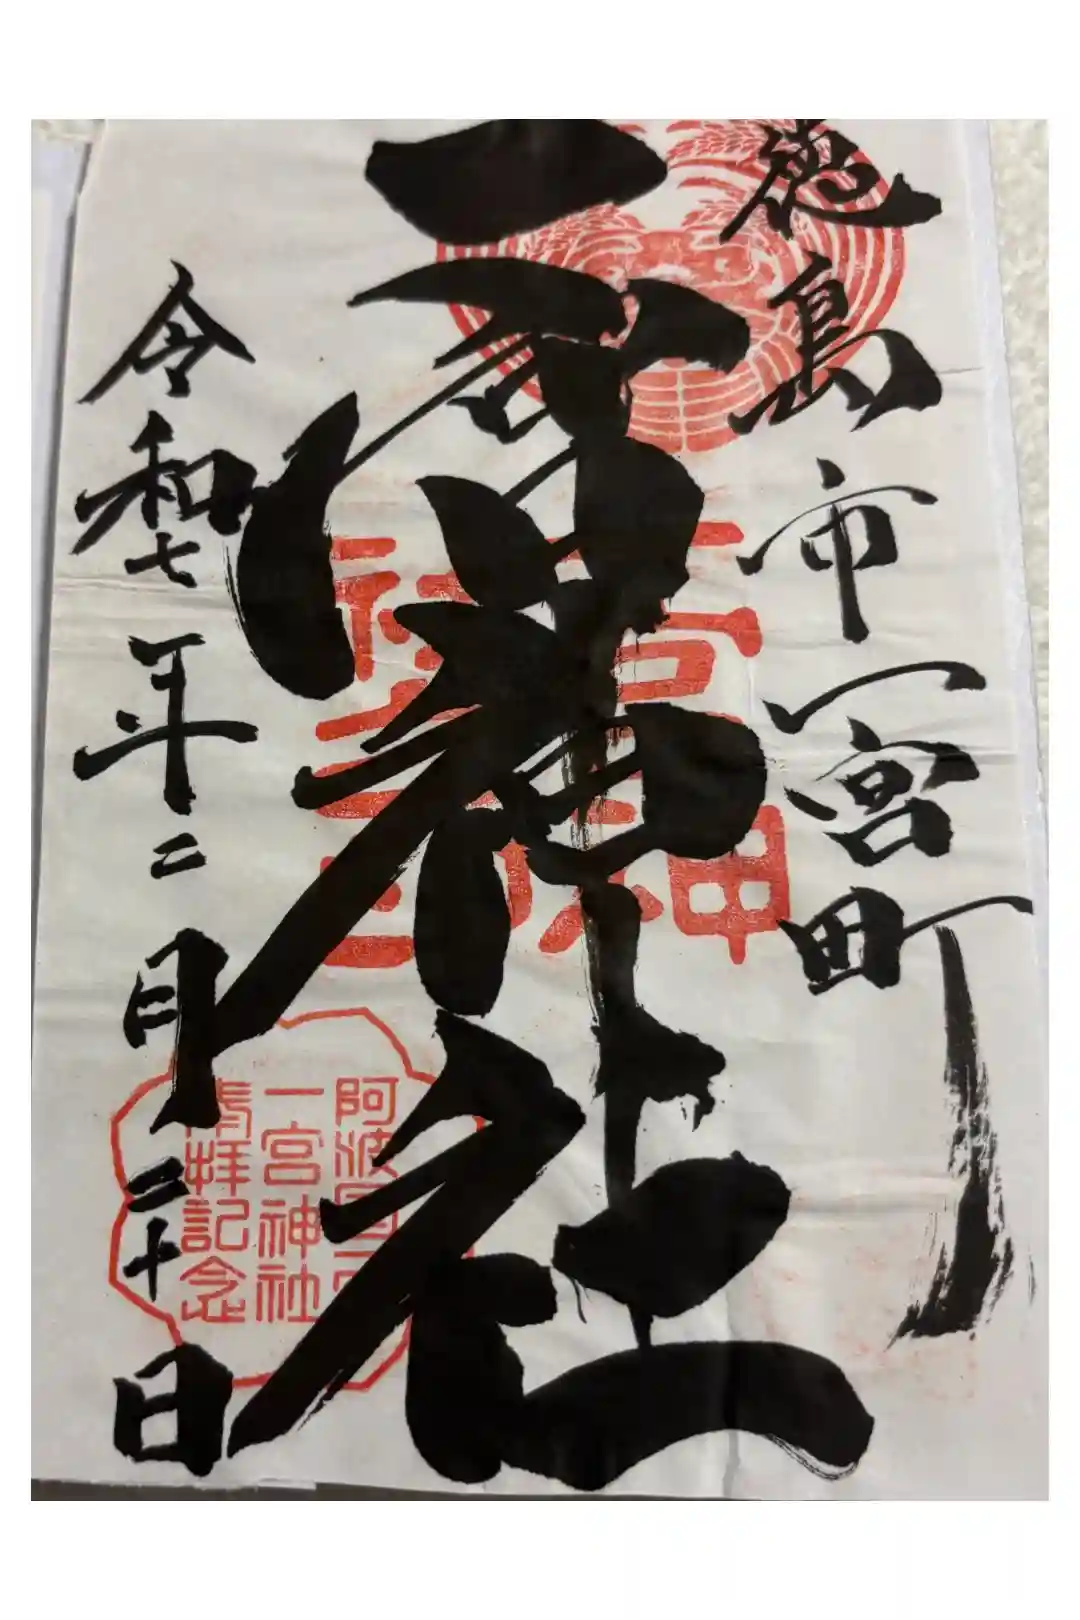 徳島市一宮町
一宮神社
令和七年二月二十日
一宮神
阿波国一
一宮神社
拝記念